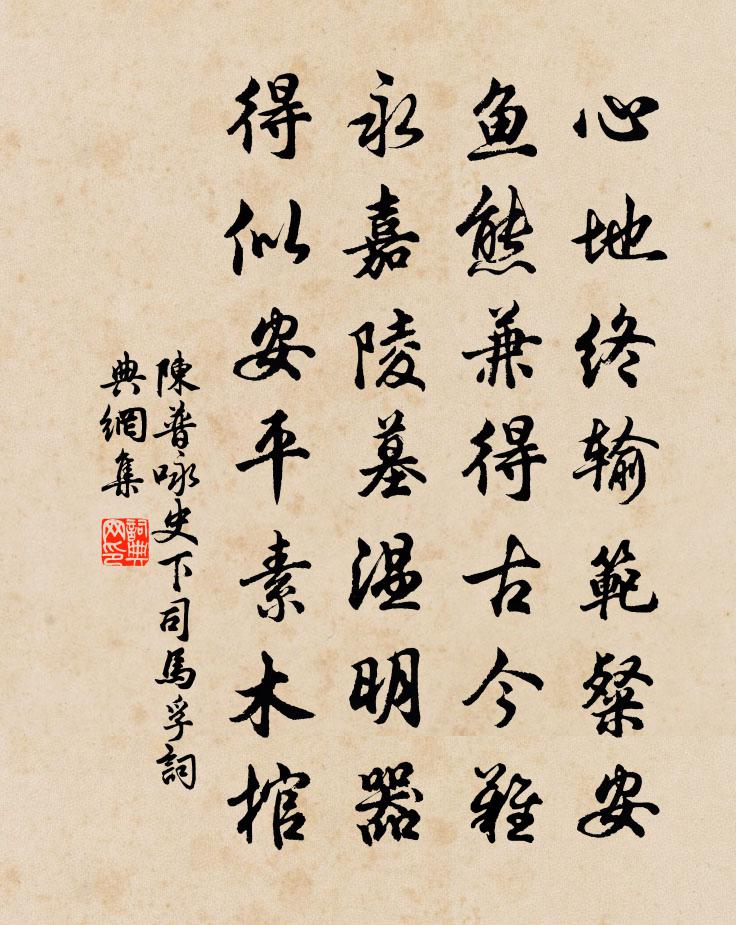 心地终输範粲安
鱼熊兼得古今難
永嘉陵墓温明器
得似安平素木棺
陳普咏史下司馬孚詞
典網集
詞典
网印